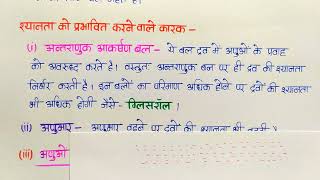 श्यानता को प्रभावित करने वाले कारक -
(i) अन्तराणुक आकर्षण बल - ये बल द्रव में अणुओं के प्रवाह
को अवरुद्ध करते है। वस्तुत अन्तराणुक बल पर ही द्रव की श्यानता
निर्भर करती है। इन बलों का परिमाण अधिक होने पर द्रवों की श्यानता
भी अधिक होगी जैसे- ग्लिसरॉल।
(ii) अणुभार - अणुभार बढ़ने पर द्रवों की श्यानता भी
(iii) अणुओ